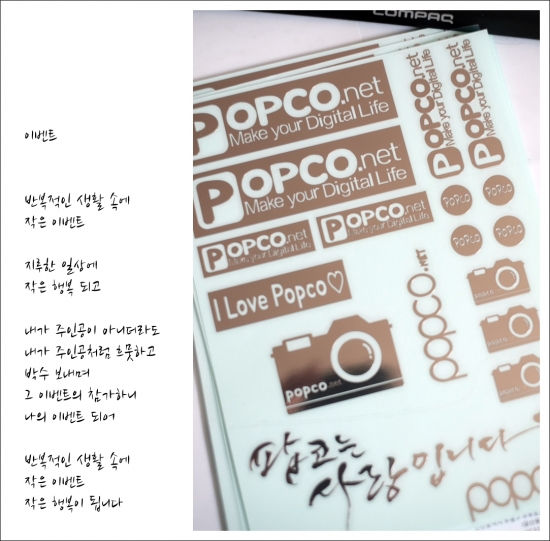 이벤트
반복적인 생활 속에
작은 이벤트
지루한 일상에
작은 행복 되고
내가 주인공이 아니더라도
내가 주인공처럼 흐뭇하고
박수 보내며
그 이벤트의 참가하니
나의 이벤트 되어
반복적인 생활 속에
작은 이벤트
작은 행복이 됩니다
COMPAQ
POPCO.net
Make your Digital Life
POPCO.net
Make your Digital Life
POPCO.net
Make your Digital Life
POPCO.net
Make your Digital Life
I Love Popco♡
popco.net
팝코는
사랑입니다
POPCO.net
Make your Digital Life
POPCO.net
Make your Digital Life
POPCO
POPCO
POPCO
POPCO
popco.NET
popco
popco
popco
popco